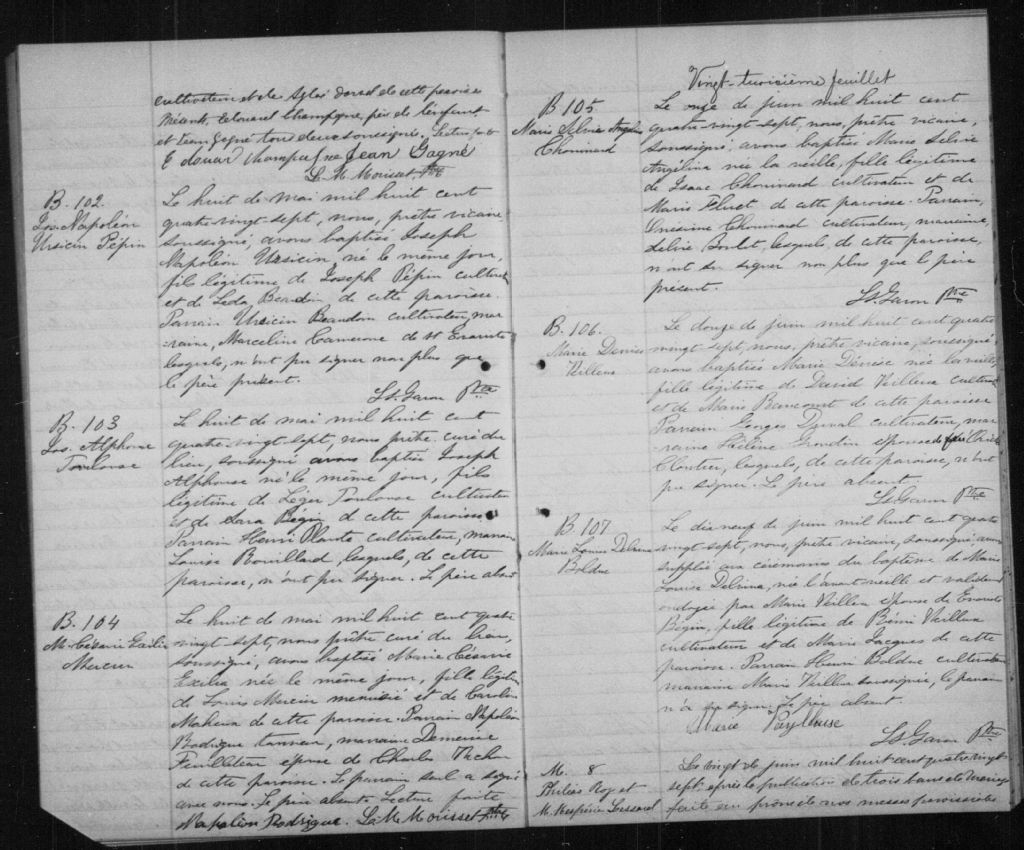 cultivateur et de de cette paroisse
Edouard Champagne, père de l'enfant
et Jean Gagné tous deux soussignés. Lecture faite
Jean Gagné
L. M. Morisset Ptre
B. 102.
Jos. Napoléon
Ursicin Pépin
Le huit de mai mil huit cent
quatre-vingt-sept, nous, prêtre vicaire
soussigné, avons baptisé Joseph
Napoléon Ursicin, né le même jour,
fils légitime de Joseph Pépin cultivat
et de Léda Beaudoin de cette paroisse.
Parrain Ursicin Beaudoin cultivateur, mar
raine, Marceline de St Evariste
lesquels, n'ont pu signer non plus que
le père présent.
Ls. Garon Ptre
B. 103
Jos. Alphonse
Toulouse
Le huit de mai mil huit cent
quatre-vingt-sept, nous prêtre curé du
lieu, soussigné avons baptisé Joseph
Alphonse né le même jour, fils
légitime de Léger Toulouse cultivateur
et de Sara Bégin de cette paroisse
Parrain Henri Plante cultivateur, marraine
Louise Rouillard lesquels, de cette
paroisse, n'ont pu signer. Le père absent
B. 104
M. Césarie Exilia
Mercier
Le huit de mai mil huit cent quatre
vingt-sept, nous prêtre curé du lieu,
soussigné, avons baptisé Marie Césarie
Exilia née le même jour, fille légitime
de Louis Mercier menuisier et de Caroline
Maheux de cette paroisse. Parrain Napoléon
Rodrigue tanneur, marraine Demerise
Feuilleteau épouse de Charles Vachon
de cette paroisse. Le parrain seul a signé
avec nous. Le père absent. Lecture faite
Napoléon Rodrigue. L. M. Morisset Ptre
Vingt-troisième feuillet
B 105
Marie Selvie Angélina
Chouinard
Le onze de juin mil huit cent
quatre-vingt-sept, nous, prêtre vicaire,
soussigné, avons baptisé Marie Selvie
Angélina née la veille, fille légitime
de Isaac Chouinard cultivateur et de
Marie Fluet de cette paroisse. Parrain,
Onésime Chouinard cultivateur, marraine,
lesquels, de cette paroisse,
n'ont su signer non plus que le père
présent.
Ls. Garon Ptre
B. 106.
Marie Démérise
Veilleux
Le douze de juin mil huit cent quatre
vingt-sept, nous, prêtre vicaire, soussigné,
avons baptisé Marie née la veille,
fille légitime de David Veilleux cultivat
et de Marie de cette paroisse
Parrain Georges Duval cultivateur, mar
-raine Hélène Grondin épouse de
Cloutier, lesquels, de cette paroisse, n'ont
pu signer. Le père absent.
Ls. Garon Ptre
B 107
Marie Louise Delvina
Bolduc
Le dix neuf de juin mil huit cent quatre
vingt-sept, nous, prêtre vicaire, soussigné, avons
supplié aux cérémonies du baptême de Marie
Louise Delvina, née l'avant-veille et validement
ondoyée par Marie Veilleux épouse de
Bégin, fille légitime de Rémi Veilleux
cultivateur et de Marie Jacques de cette
paroisse. Parrain Henri Bolduc cultivateur
marraine Marie Veilleux soussignée, le parrain
n'a pu signer. Le père absent.
Marie Vaylleuse
Ls. Garon Ptre
M. 8
Philéas Roy et
M.
Le vingt de juin mil huit cent quatre vingt
sept, après la publication de trois bans de mariage
faite au prône de nos messes paroissiales